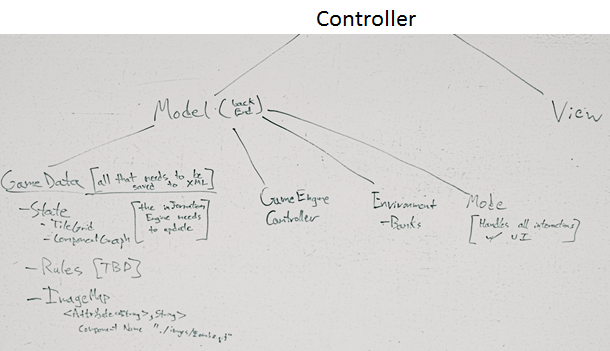 Controller
Model (back End)
View
GameData [all that needs to be saved to XML]
- State [the information Engine needs to update]
- TileGrid
- ComponentGraph
- Rules [TBA]
- ImageMap
<Attribute<String>, String>
Component Name "./imgs/Zombie.gif"
GameEngine
Controller
Environment
- Banks
Mode
[Handles all interactions
w/ UI]